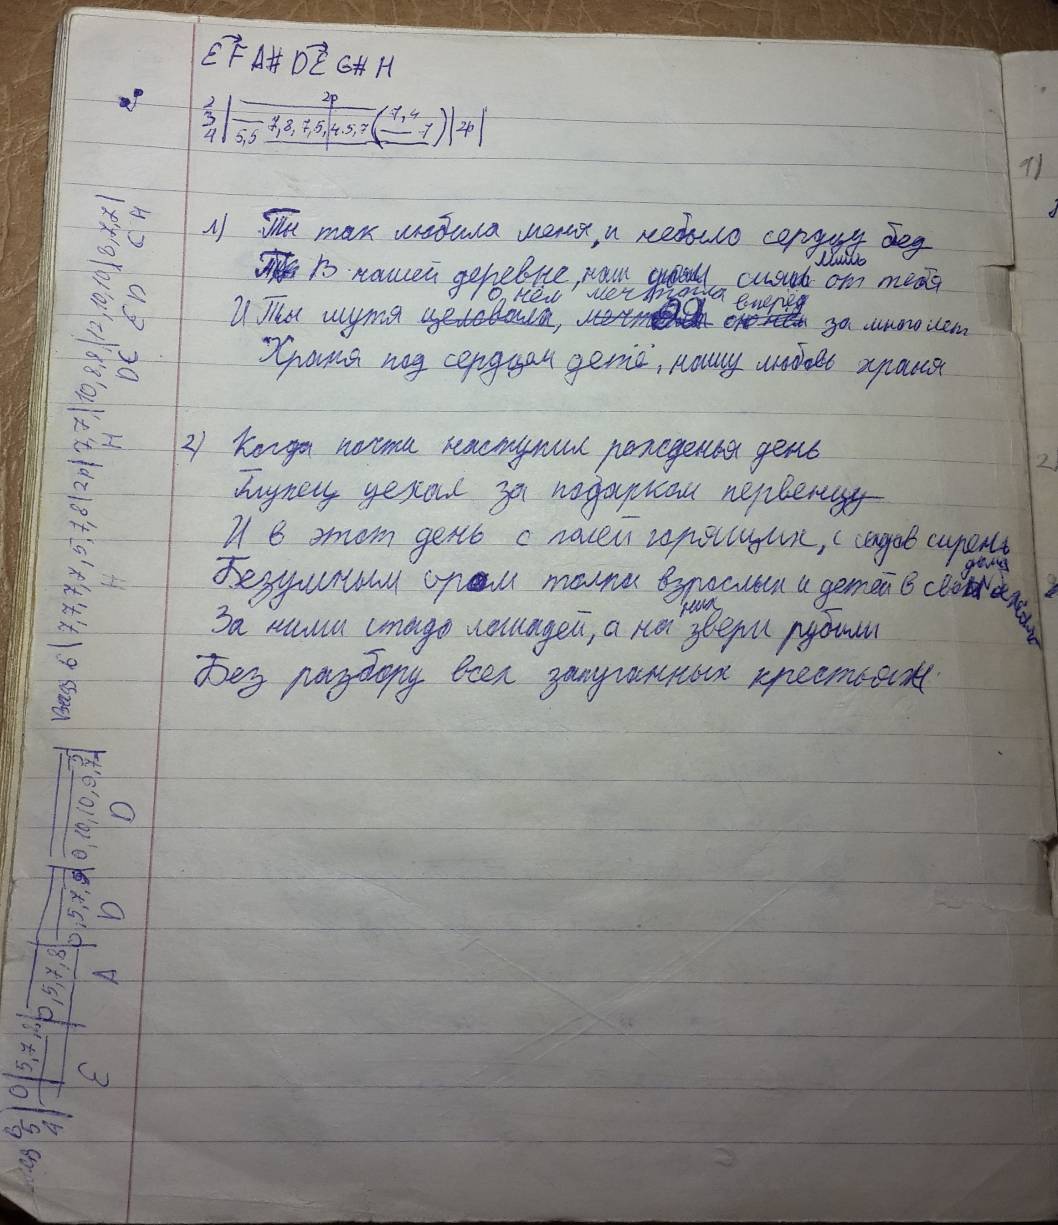 E F A# D E G# H
2p
2
3
4
5,5 7,8,7,5,4.5,7 (7,4 7) | 2p |
1) Ты так любила меня, и небыло сердцу бед
В нашей деревне, наш сиял лишь от тебя
о нём мечтала вперёд
И Ты шутя целовала, за много лет
Храня под сердцем детё, нашу любовь храня
2) Когда почти наступил рожденья день
Глупец уехал за подарком первенцу
И в этот день с полей горящих, с садов сирень
Безумным ором толпа взрослых и детей в свои дома
За ними стадо лошадей, а на них звери рубили
Без разбору всех запуганных крестьян
Bass 6 | 7,7,7,7,5,7,8 | 2p | 7,7 | 10,8,8 | 12,10,10 | 8,7,7 |
H H D E G C H
6
5
4
0 | 5,7,8 | 0,5,7,8 | 0,5,7,9 | 0,10,10,9,7 |
E A G D
1)
2)